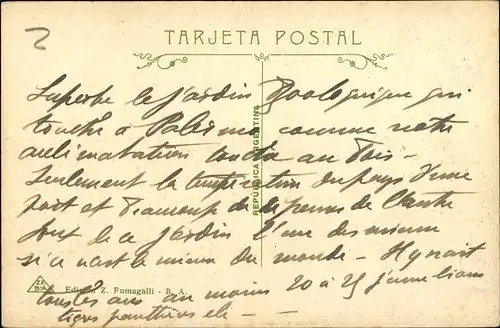 2
TARJETA POSTAL
Superbe le jardin Zoologique qui
touche à Palermo comme notre
acclimatation touche au Bois -
Seulement la température du pays d'une
part et beaucoup de de l'autre
font de ce jardin l'un des mieux
si ce n'est le mieux du monde - Il y nait
tous les ans au moins 20 à 25 jeunes lions
tigres panthères etc -
REPÚBLICA ARGENTINA
Edición Z. Fumagalli - B. A.